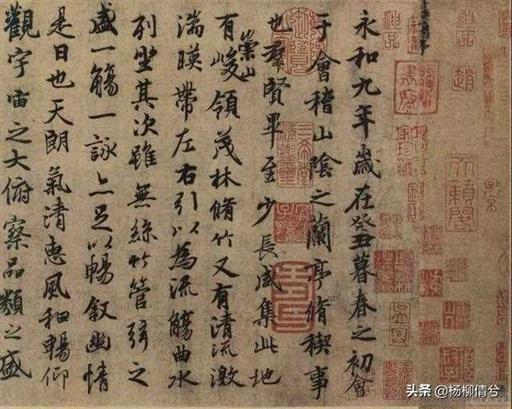 永和九年歲在癸丑暮春之初會
于會稽山陰之蘭亭脩稧事
也羣賢畢至少長咸集此地
有崇山峻領茂林脩竹又有清流激
湍暎帶左右引以為流觴曲水
列坐其次雖無絲竹管弦之
盛一觴一詠亦足以暢敘幽情
是日也天朗氣清惠風和暢仰
觀宇宙之大俯察品類之盛
頭条 @杨柳倩兮